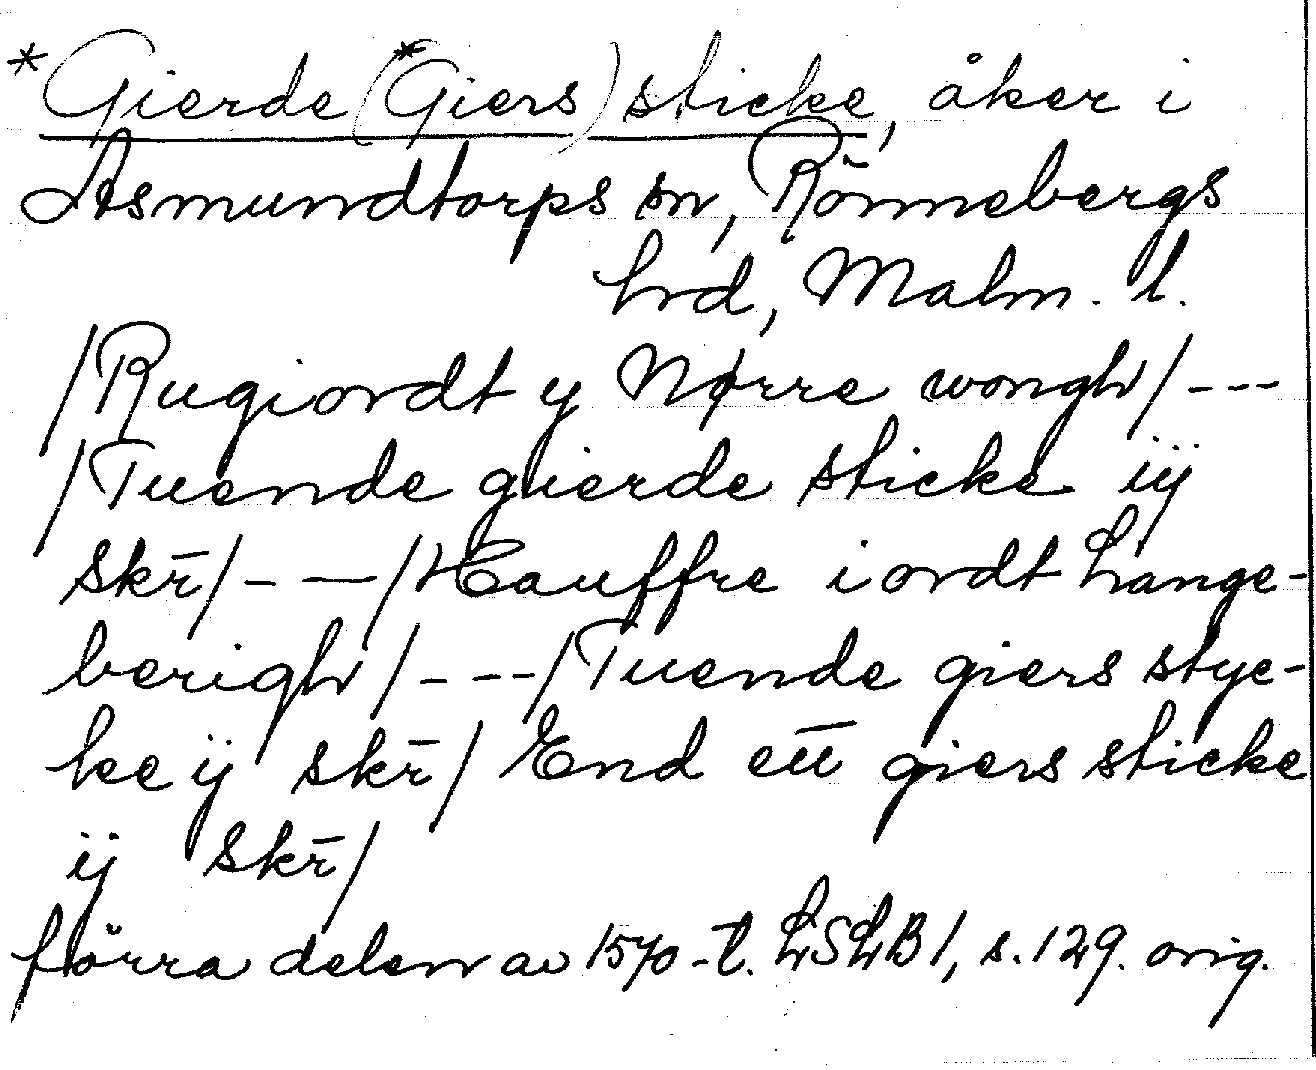 *Gierde(*Giers)sticke, åker i
Asmundtorps sn, Rönnebergs
hrd, Malm. l.
/Rugiordt y Nørre wongh/---
/Tuende gierde sticke iÿ
skr̄/- -—/Hauffre iordt Lange-
berigh/---/Tuende giers stye-
ke ÿ skr̄/ End ett giers sticke
ÿ skr̄/
förra delen av 1570-t. LSLB1, s.129. orig.